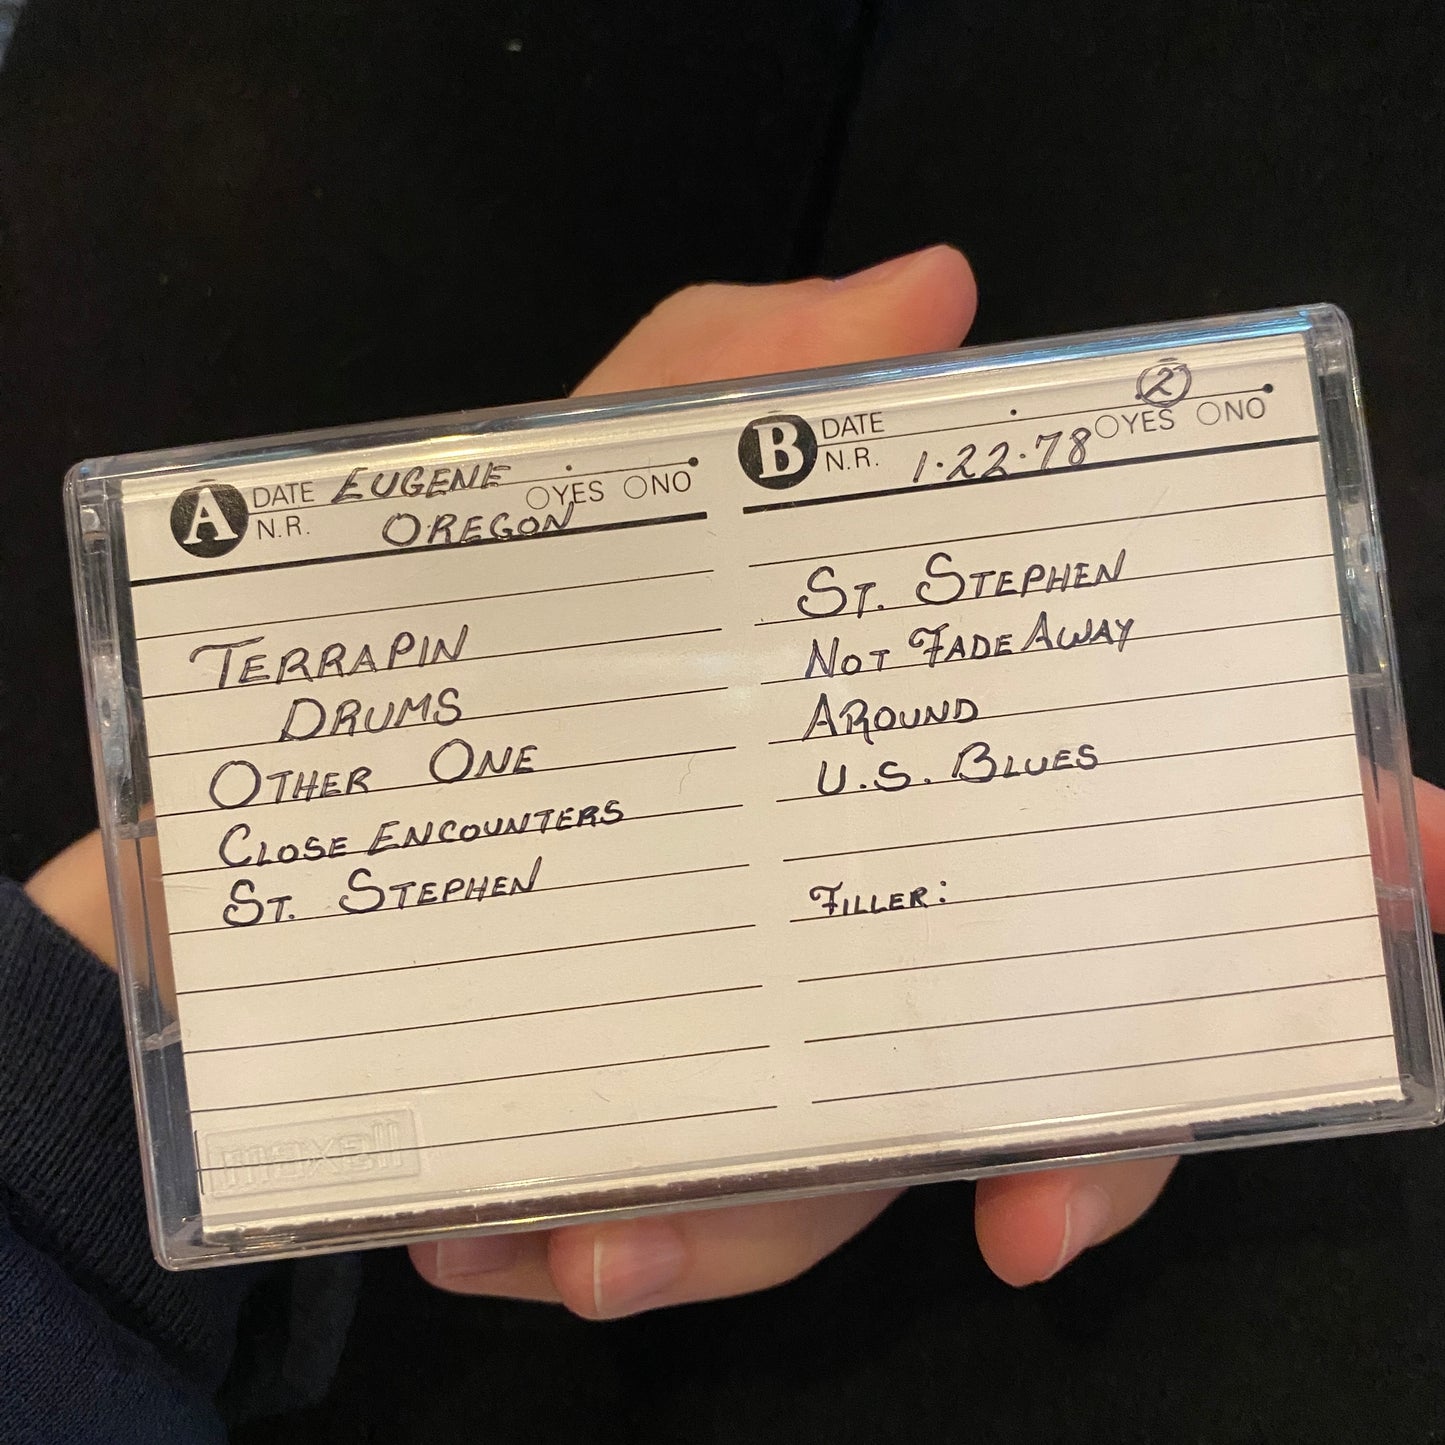 A DATE EUGENE YES NO
N.R. OREGON
TERRAPIN
DRUMS
OTHER ONE
CLOSE ENCOUNTERS
ST. STEPHEN
maxell
B DATE 2 YES NO
N.R. 1·22·78
ST. STEPHEN
NOT FADE AWAY
AROUND
U.S. BLUES
FILLER: